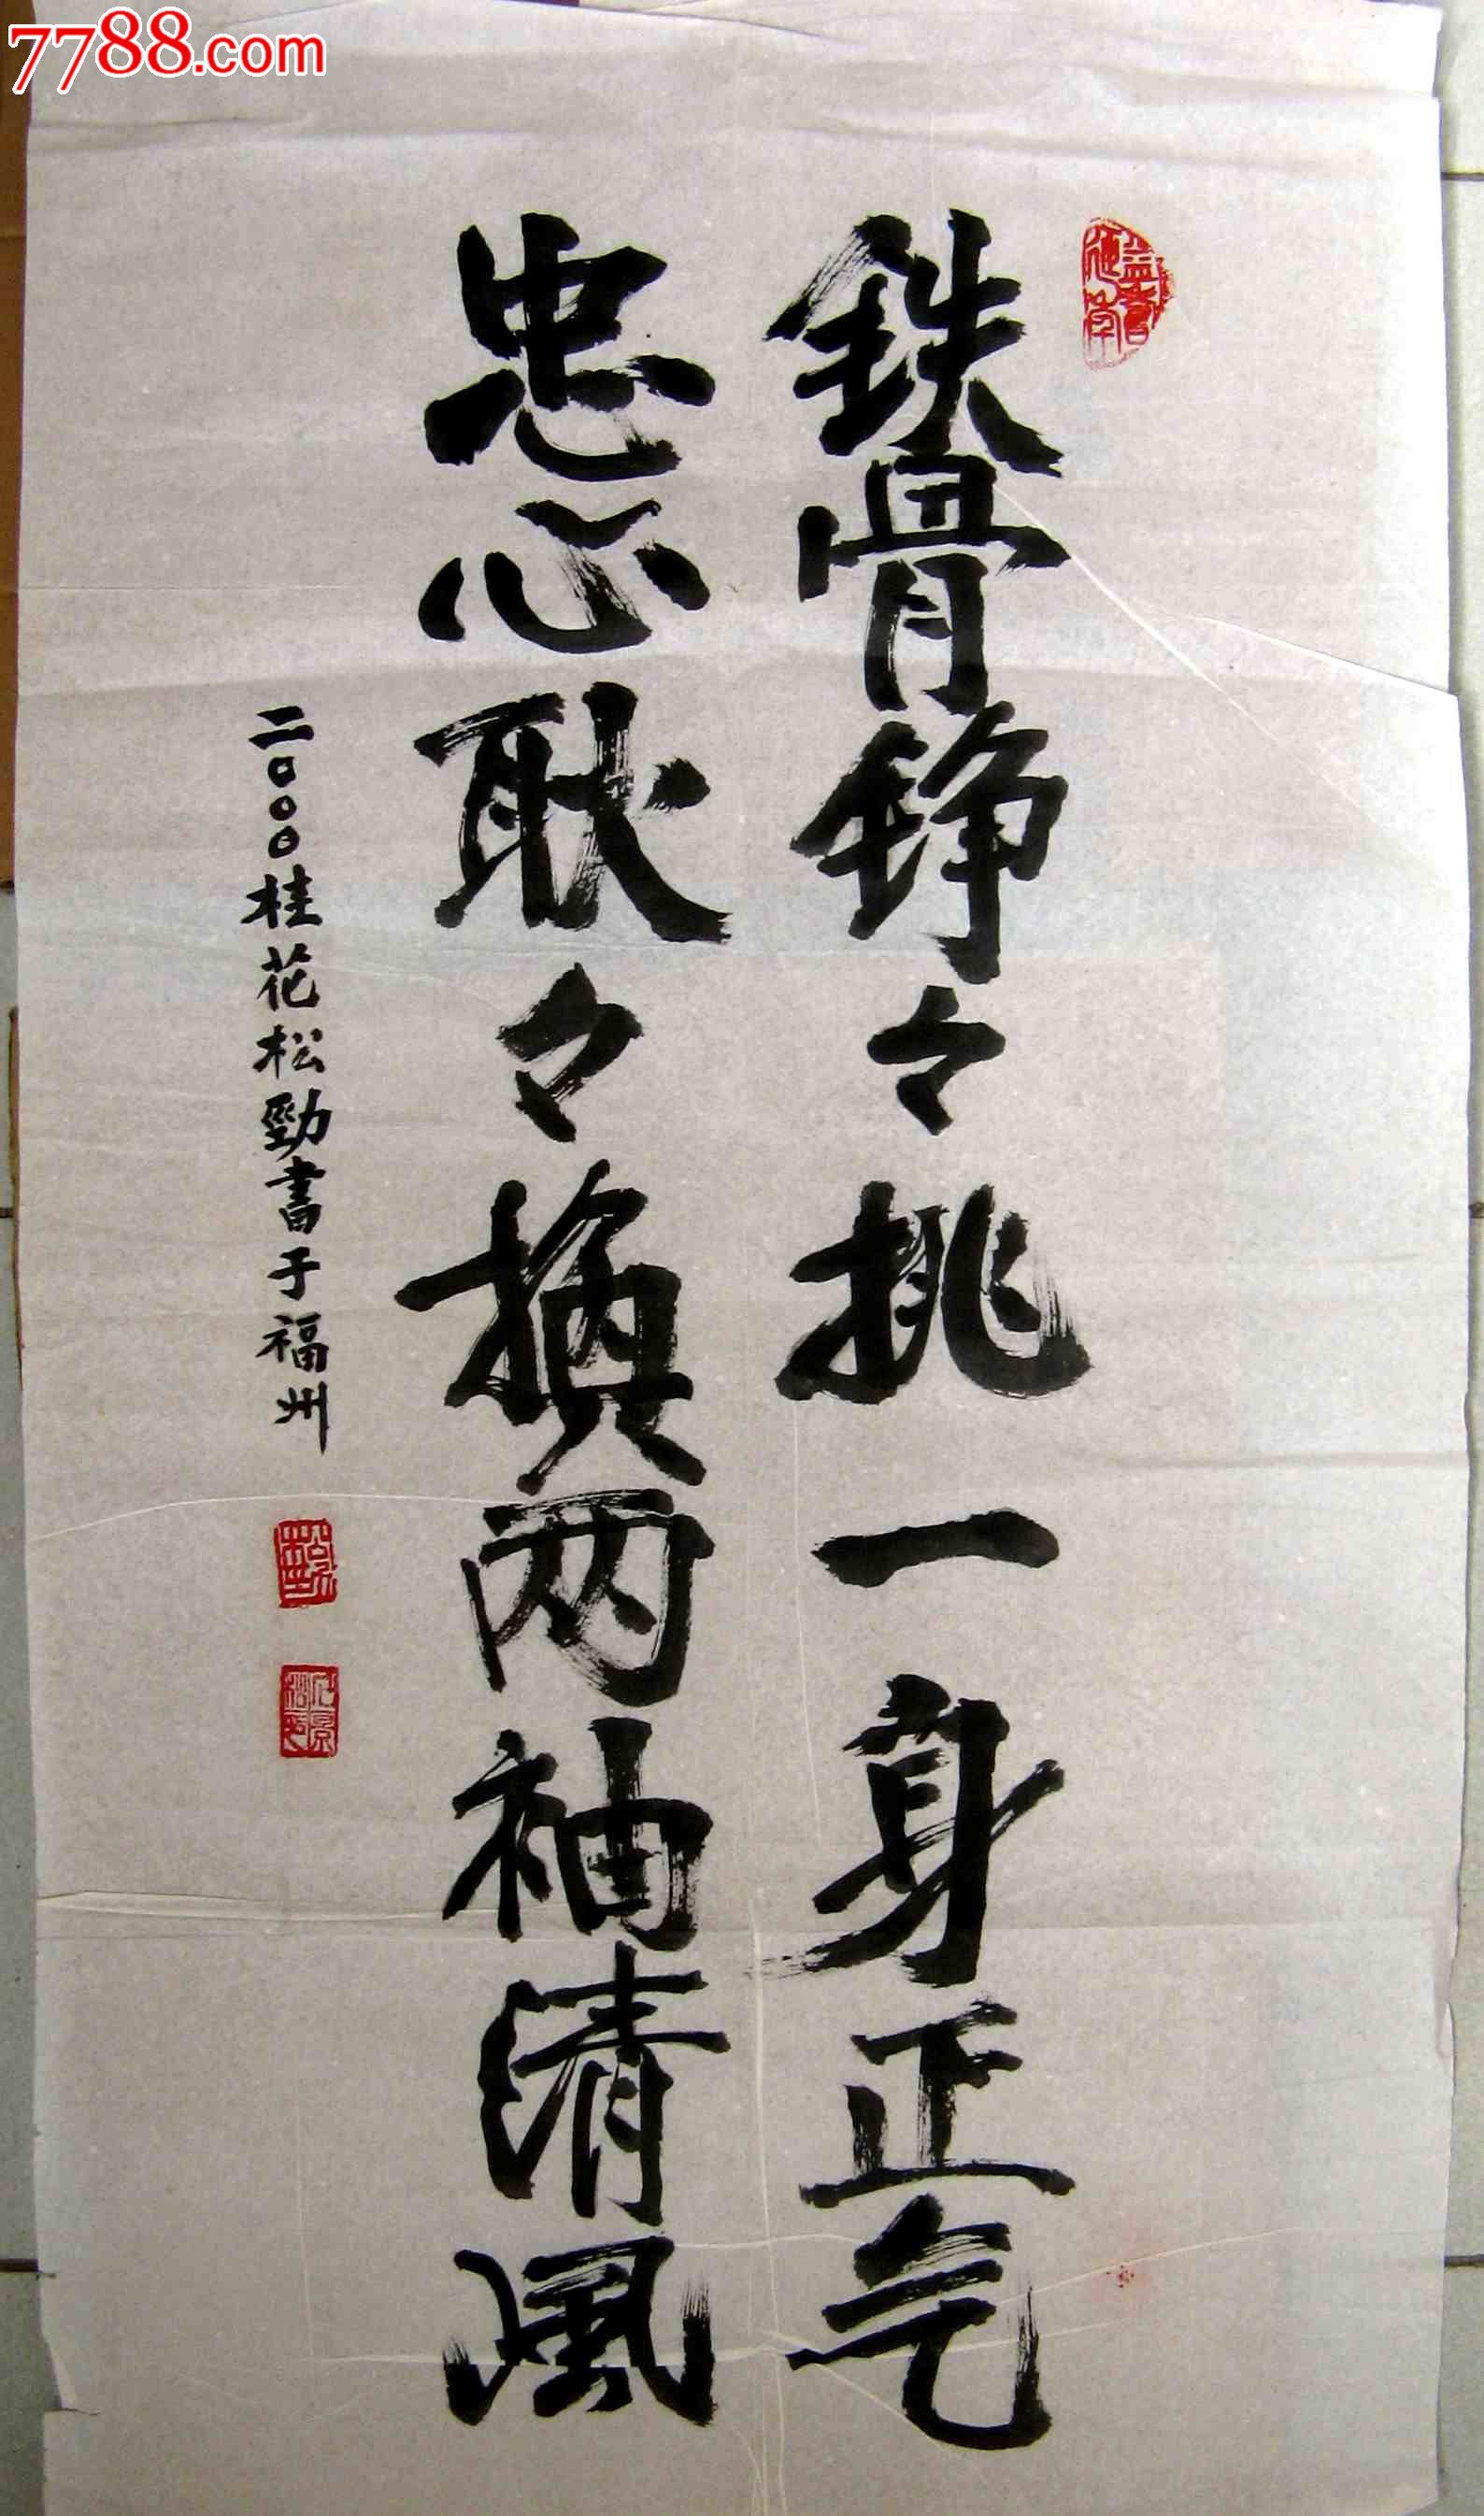 7788.com
鉄骨铮々挑一身正气
忠心耿々换两袖清风
二〇〇〇桂花松勁書于福州